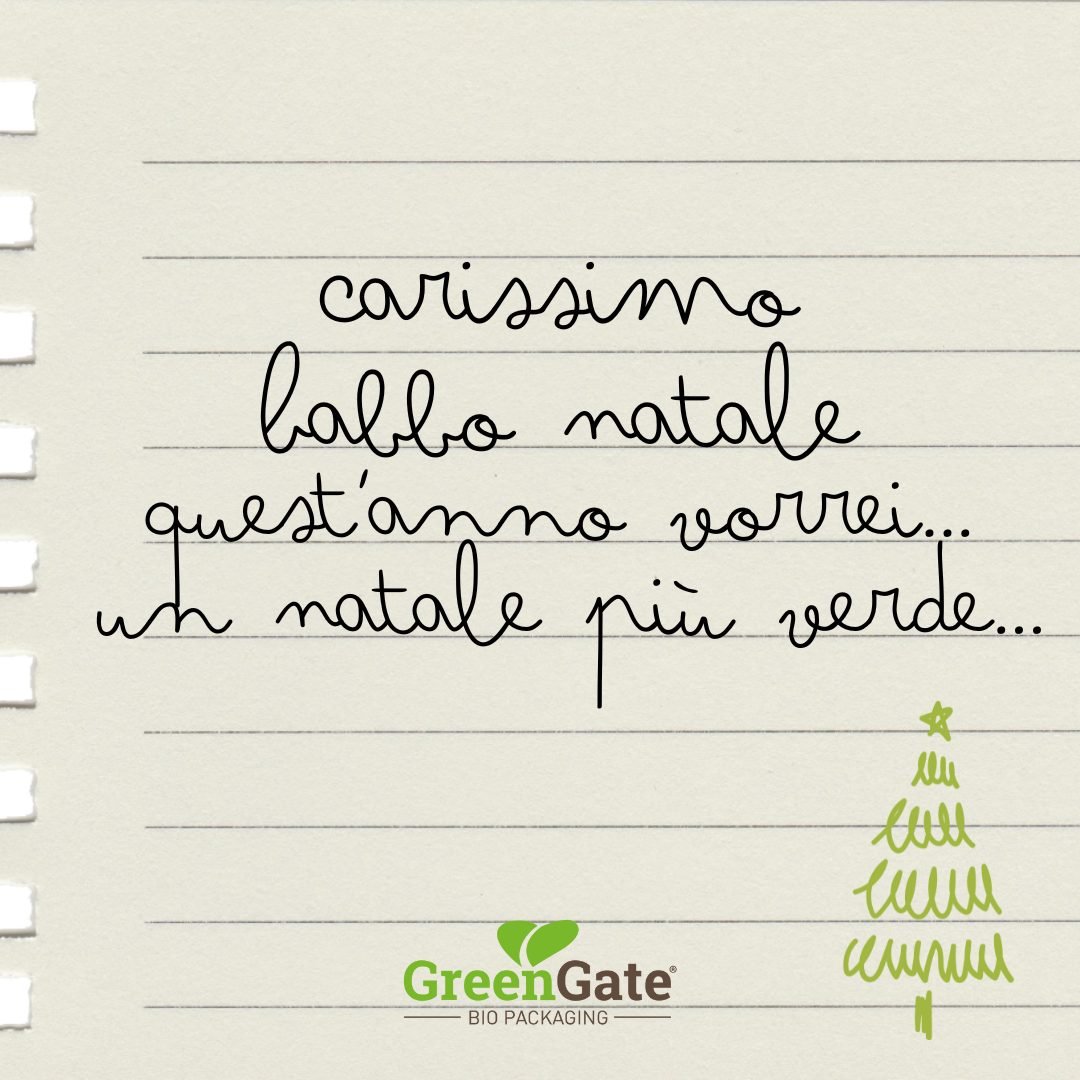 carissimo
babbo natale
quest'anno vorrei...
un natale più verde...
GreenGate®
BIO PACKAGING